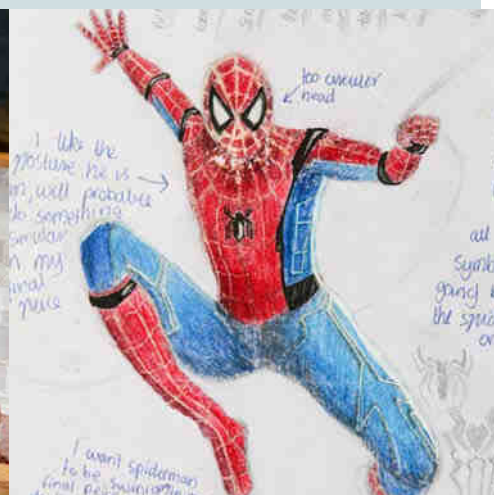 too circular
head
I like the
posture he is
in, will probably
do something
similar
in my
final
piece
all
symb
going
the spid
on
I want spiderman
to be swinging
final